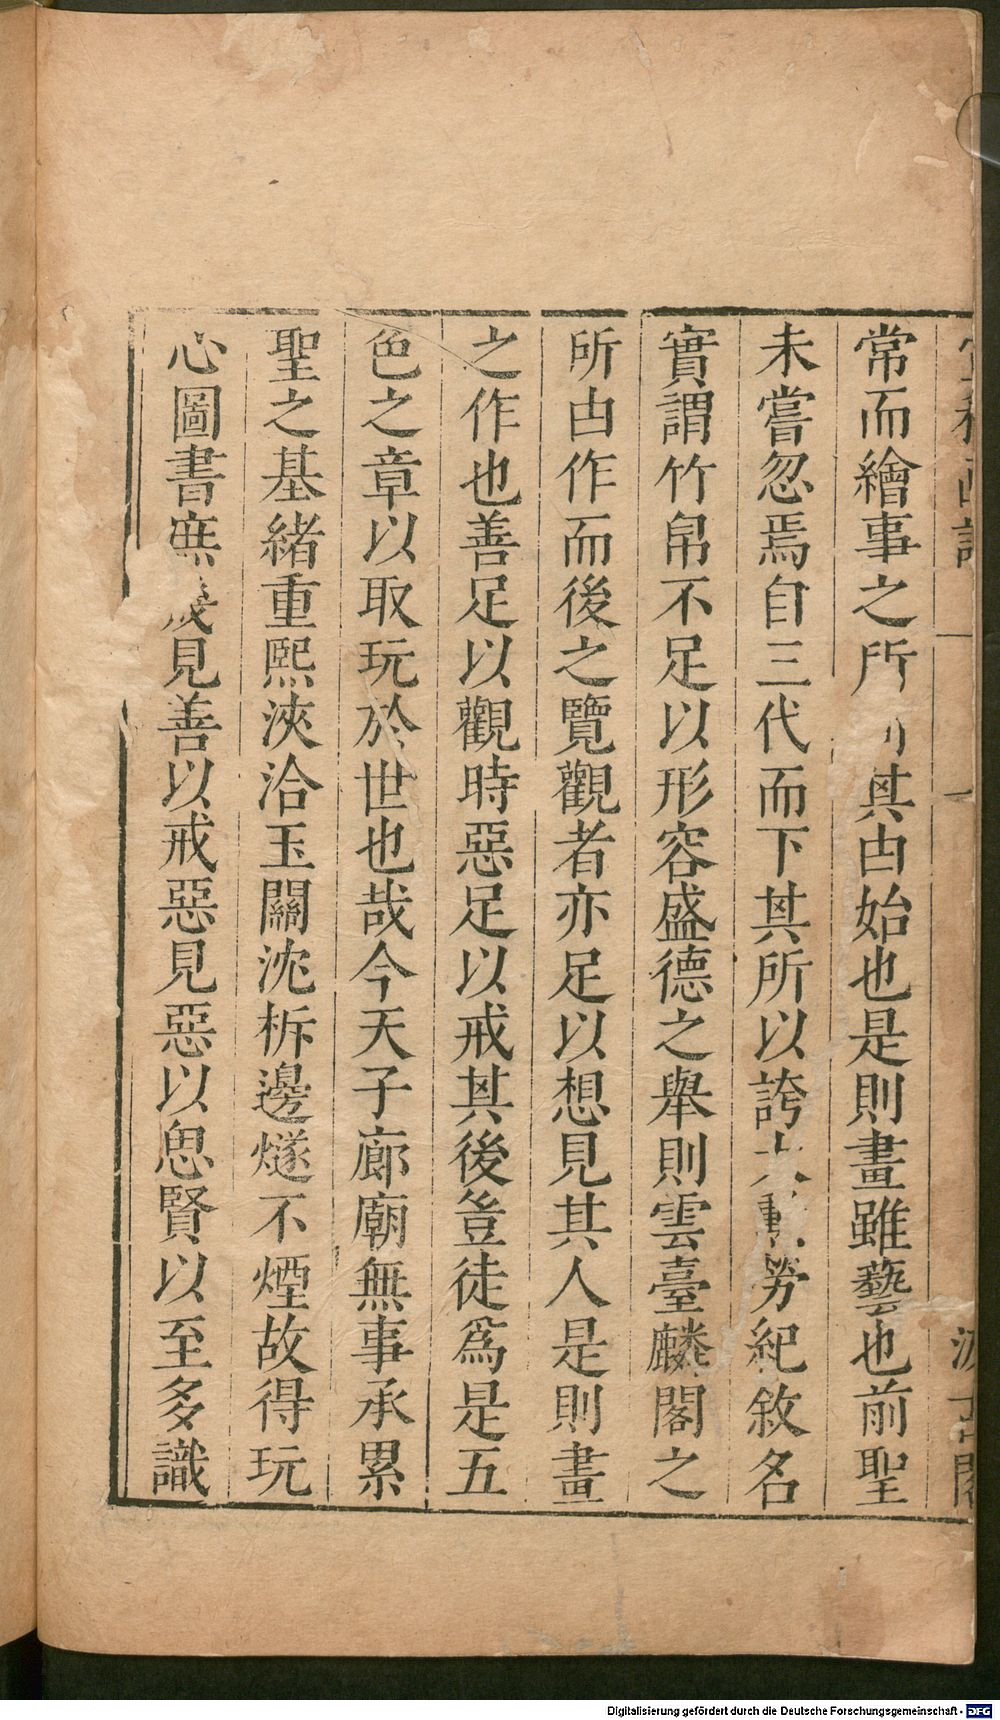 宣和畫譜 一 汲古閣
常而繪事之所其由始也是則畫雖藝也前聖
未嘗忽焉自三代而下其所以誇大勳勞紀敘名
實謂竹帛不足以形容盛德之舉則雲臺麟閣之
所由作而後之覽觀者亦足以想見其人是則畫
之作也善足以觀時惡足以戒其後豈徒爲是五
色之章以取玩於世也哉今天子廊廟無事承累
聖之基緒重熙浹洽玉關沈柝邊燧不煙故得玩
心圖書庶幾見善以戒惡見惡以思賢以至多識
Digitalisierung gefördert durch die Deutsche Forschungsgemeinschaft - DFG